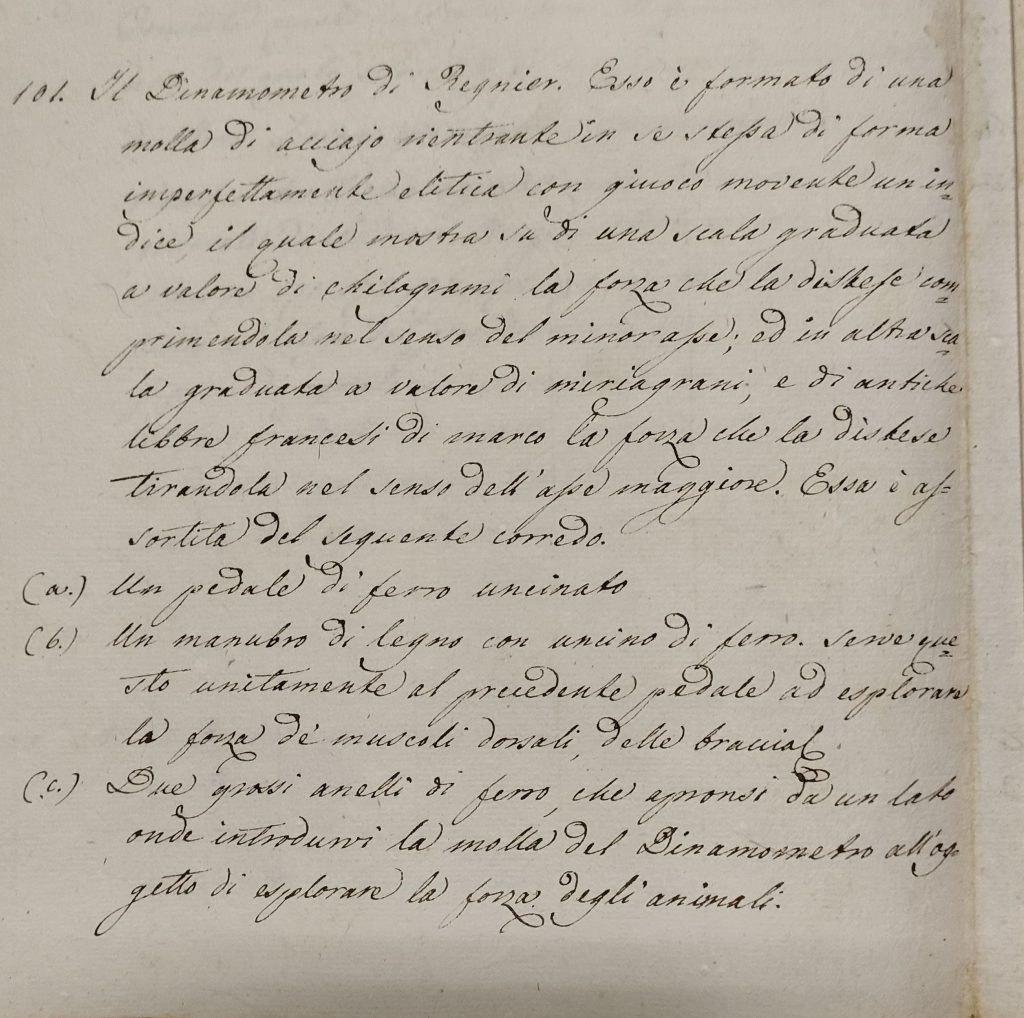 101. Il Dinamometro di Regnier. Esso è formato di una
molla di acciajo rientrante in se stessa di forma
imperfettamente elitica con giuoco movente un in=
dice, il quale mostra su di una scala graduata
a valore di chilogrami la forza che la distese com=
primendola nel senso del minor asse; ed in altra sca=
la graduata a valore di miriagrani, e di antiche
libbre francesi di marco la forza che la distese
tirandola nel senso dell'asse maggiore. Essa è as=
sortita del seguente corredo.
(a.) Un pedale di ferro uncinato
(b.) Un manubro di legno con uncino di ferro. serve que=
sto unitamente al precedente pedale ad esplorare
la forza de' muscoli dorsali, delle braccia &.
(c.) Due grossi anelli di ferro, che apronsi da un lato
onde introdurvi la molla del Dinamometro all'og=
getto di esplorare la forza degli animali.